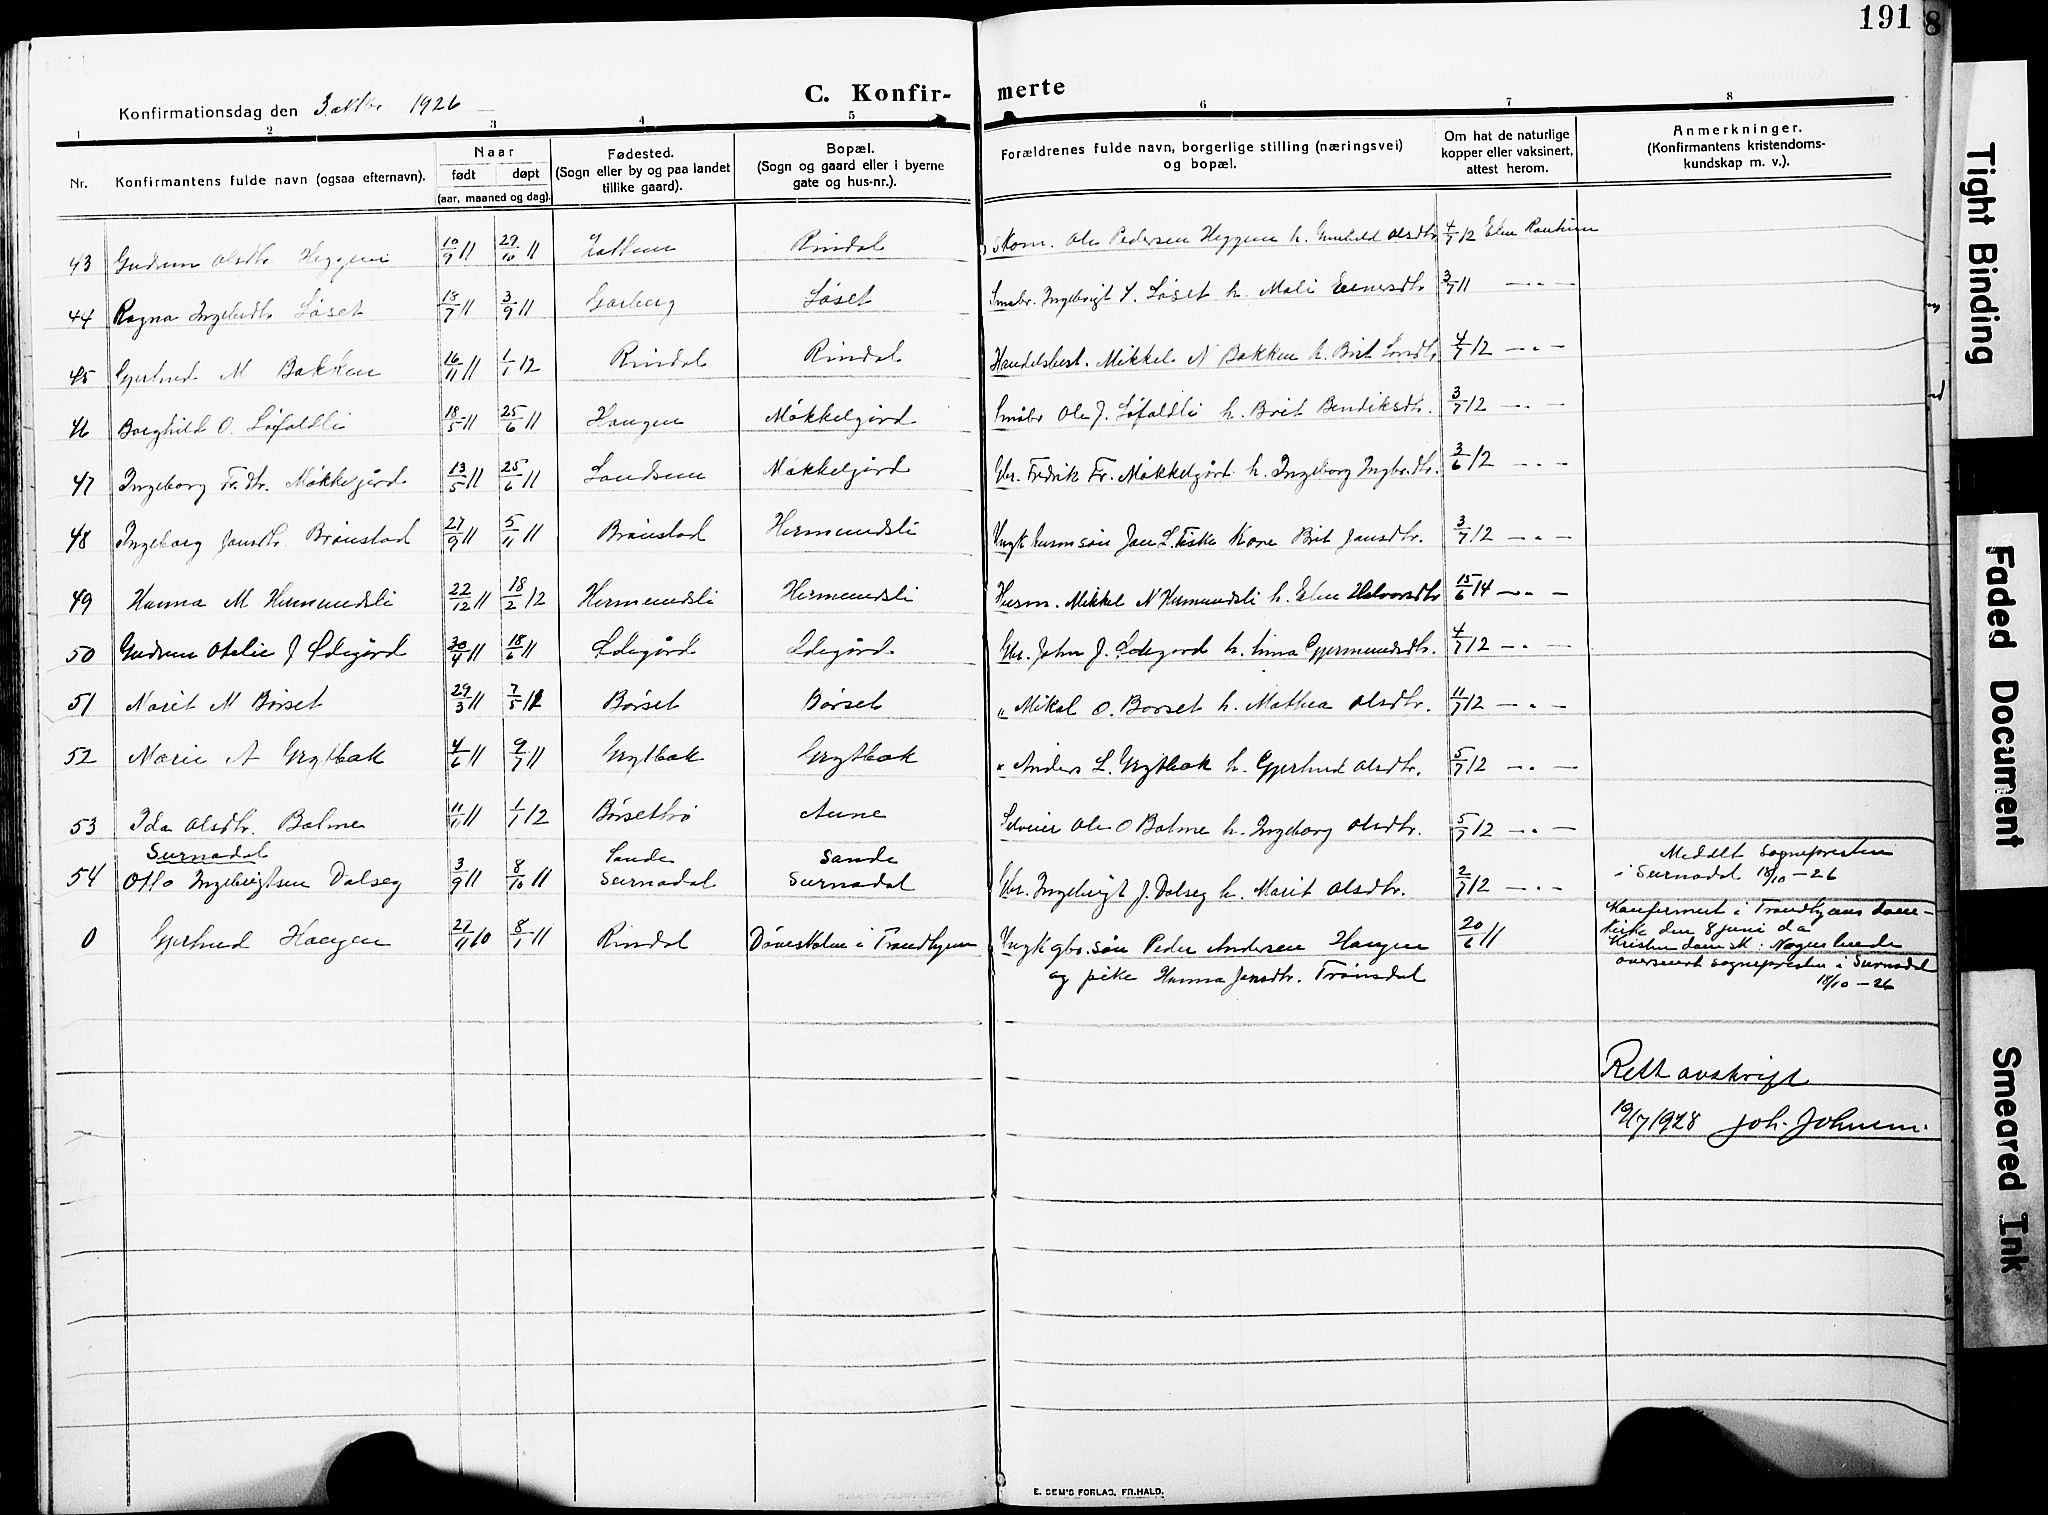 191
8
Konfirmationsdag den 3 oktbr 1926
C. Konfir- merte
1 2 3 4 5 6 7 8
Nr. Konfirmantens fulde navn (ogsaa efternavn). Naar født døpt (aar, maaned og dag). Fødested. (Sogn eller by og paa landet tillike gaard). Bopæl. (Sogn og gaard eller i byerne gate og hus-nr.). Forældrenes fulde navn, borgerlige stilling (næringsvei) og bopæl. Om hat de naturlige kopper eller vaksinert, attest herom. Anmerkninger. (Konfirmantens kristendoms- kundskap m. v.).
43 Gudrun Olsdtr Heggem 10/9 11 29/10 11 Rindal Skom. Ole Pedersen Heggem h. Gunhild Olsdtr 4/7 12 Elen Ranheim
44 Ragna Ingebrdtr Løset 18/7 11 3/9 11 Garberg Løset Småbr. Ingebrigt Løset h. Mali 3/7 11 — „ —
45 Gjertrud M Bakken 16/11 11 1/1 12 Rindal Rindal Handelsbest. Mikkel N Bakken h. Brit 4/7 12 — „ —
46 Borghild O. Løfaldli 18/5 11 25/6 11 Haugen Møkkelgård Småbr Ole J. Løfaldli h. Brit Bendiksdtr. 3/7 12 — „ —
47 Ingeborg Fr.dtr. Møkkelgård 13/5 11 25/6 11 Landsem Møkkelgård Gbr. Fredrik Fr. Møkkelgård h. Ingeborg Ingbr.dtr. 3/6 12 — „ —
48 Ingeborg Jansdtr. Brønstad 27/9 11 5/11 11 Brønstad Hermundsli Ungk husm søn Jan L. Fiske Kone Brit Jansdtr. 3/7 12 — „ —
49 Hanna M Hermundsli 22/12 11 18/2 12 Hermundsli Hermundsli Husm. Mikkel N Hermundsli h. Elen Halvorsdtr 15/6 14 — „ —
50 Gudrun Otelie J Ødegård 30/4 11 18/6 11 Ødegård Ødegård Gbr. John J. Ødegård h. Gjermundsdtr. 4/7 12 — „ —
51 Marit M Børset 29/3 11 7/5 11 Børset Børset „ Mikal O. Børset h. Mathea Olsdtr. 11/7 12 — „ —
52 Marie A Grytbak 4/6 11 9/7 11 Grytbak Grytbak „ Anders L. Grytbak h. Gjertrud Olsdtr. 5/7 12 — „ —
53 Ida Olsdtr. Bolme 11/11 11 1/1 12 Børsettrø Aune Ole O Bolme h. Ingeborg Olsdtr. 5/7 12 — „ —
Surnadal Sande Sande Meddelt sognepresten
54 Otto Ingebrigtsen Dalseg 3/9 11 8/10 11 Surnadal Surnadal Gbr. Ingebrigt J. Dalseg h. Marit Olsdtr. 2/7 12 — „ — i Surnadal 18/10 – 26
0 Gjertrud Haugen 27/11 10 8/1 11 Rindal Døveskolen i Trondhjem Ungk gbr. søn Peder Andersen Haugen 20/6 11 Konfirmert i Trondhjems dom-
kirke den 8 juni da
Kristendomsk: Nogenlunde
og pike Hanna Jansdtr. Trønsdal oversendt sognepresten i Surnadal
18/10 – 26
Rett avskrift
19/7 1928 Joh. Johnsen.
E. SEM'S FORLAG, FR.HALD.
Tight Binding
Faded Document
Smeared Ink